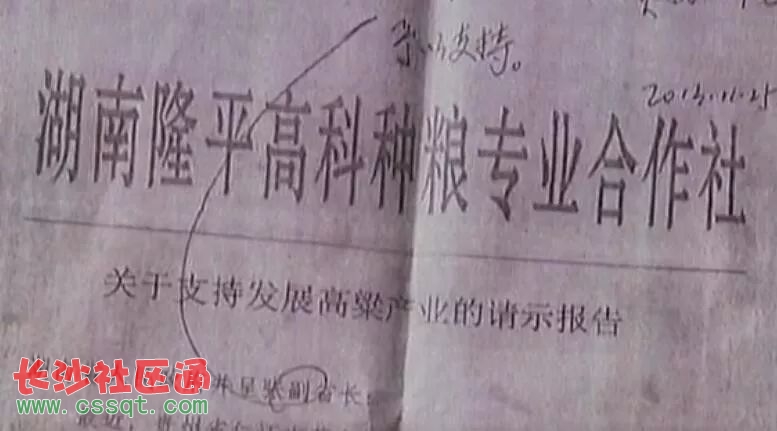 支持。
2013.11.25
湖南隆平高科种粮专业合作社
关于支持发展高粱产业的请示报告
并呈张副省长：
长沙社区通
www.cssqt.com
最近，贵州省仁怀市